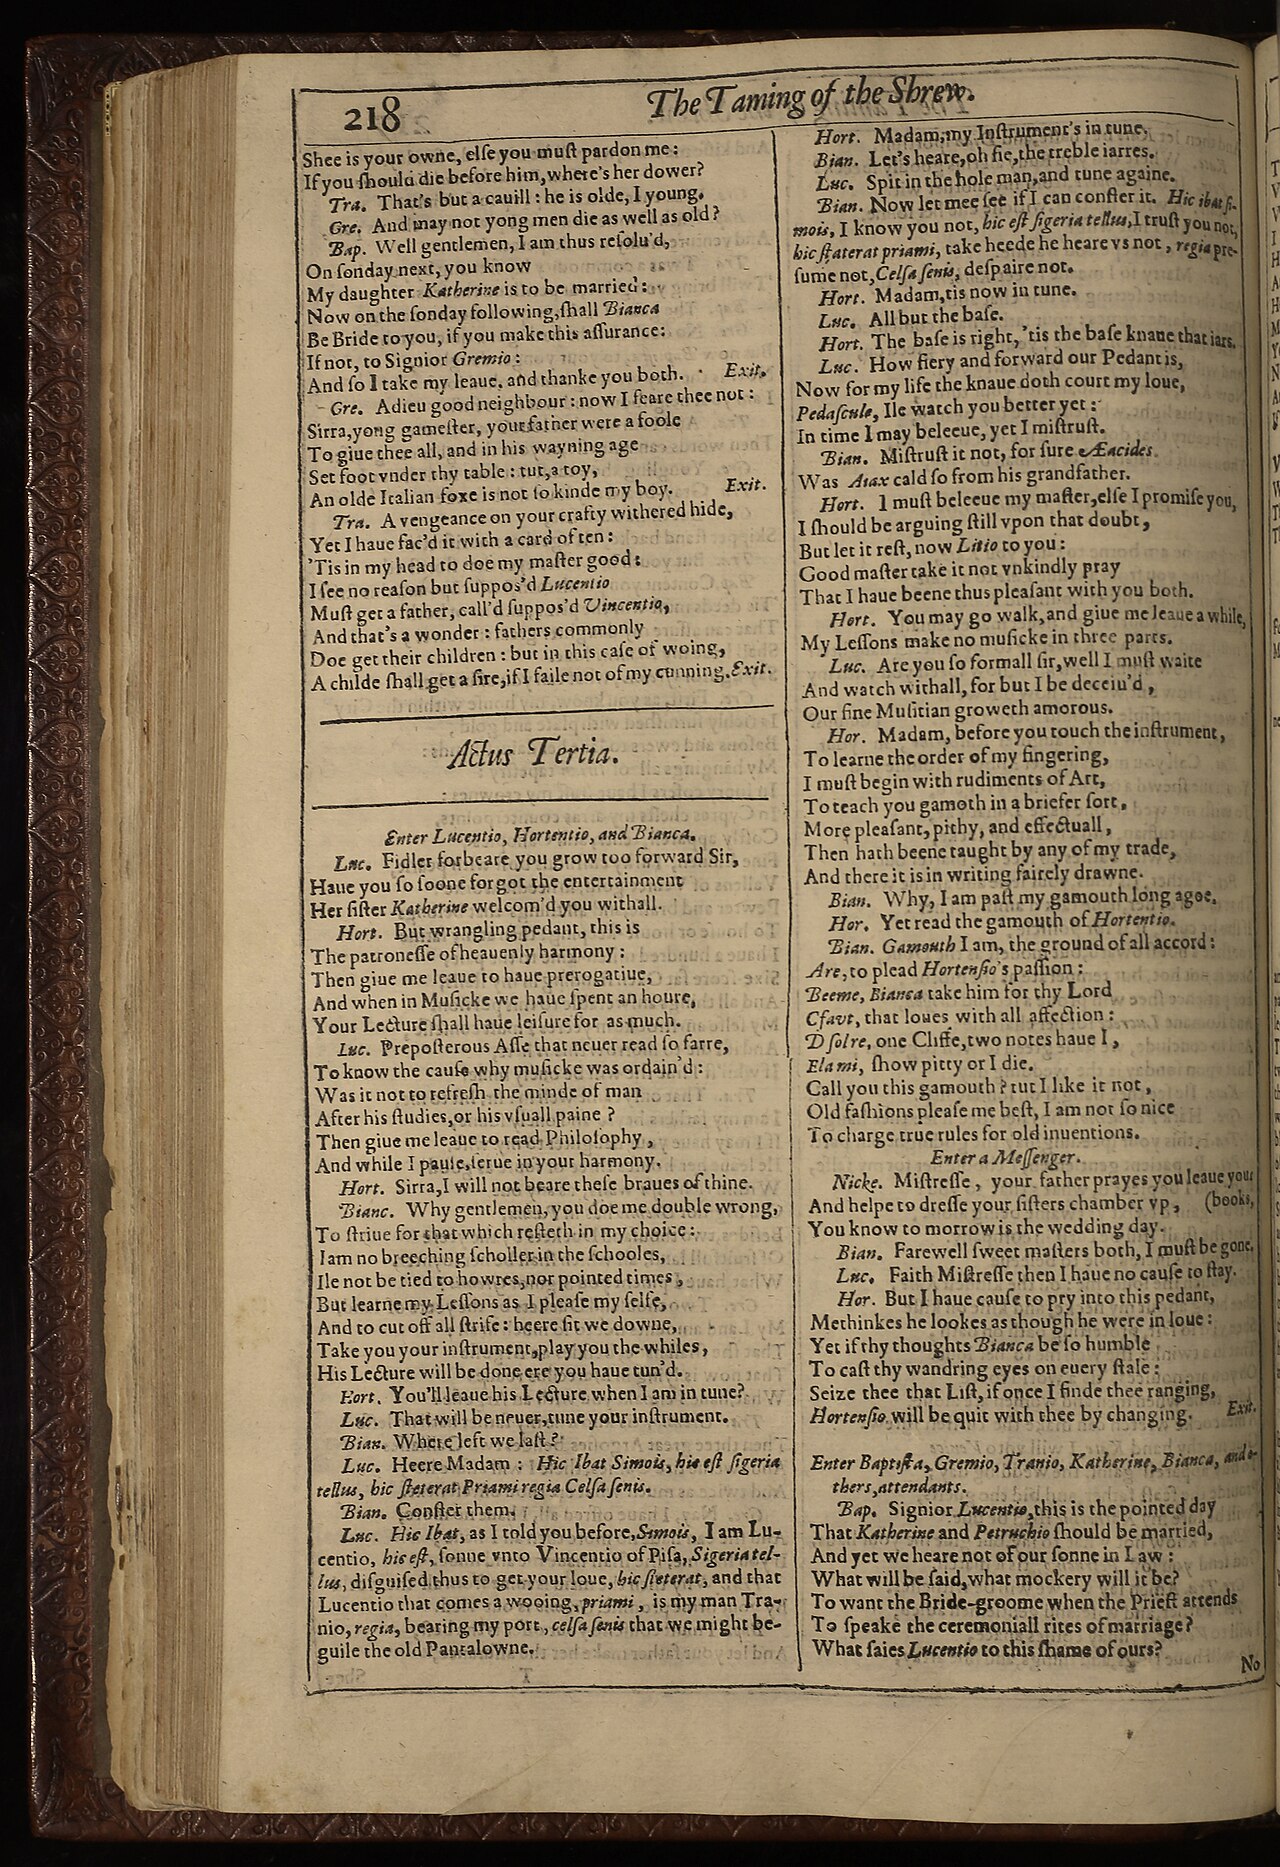 218
The Taming of the Shrew.
Shee is your owne, elſe you muſt pardon me:
If you ſhould die before him, where's her dower?
Tra. That's but a cauill: he is olde, I young.
Gre. And may not yong men die as well as old?
Bap. Well gentlemen, I am thus reſolu'd,
On ſonday next, you know
My daughter Katherine is to be married:
Now on the ſonday following, ſhall Bianca
Be Bride to you, if you make this aſſurance:
If not, to Signior Gremio:
And ſo I take my leaue, and thanke you both. Exit.
Gre. Adieu good neighbour: now I feare thee not:
Sirra, yong gameſter, your father were a foole
To giue thee all, and in his wayning age
Set foot vnder thy table: tut, a toy,
An olde Italian foxe is not ſo kinde my boy. Exit.
Tra. A vengeance on your crafty withered hide,
Yet I haue fac'd it with a card of ten:
'Tis in my head to doe my maſter good:
I ſee no reaſon but ſuppos'd Lucentio
Muſt get a father, call'd ſuppos'd Vincentio,
And that's a wonder: fathers commonly
Doe get their children: but in this caſe of woing,
A childe ſhall get a ſire, if I faile not of my cunning. Exit.
Actus Tertia.
Enter Lucentio, Hortentio, and Bianca.
Luc. Fidler forbeare, you grow too forward Sir,
Haue you ſo ſoone forgot the entertainment
Her ſiſter Katherine welcom'd you withall.
Hort. But wrangling pedant, this is
The patroneſſe of heauenly harmony:
Then giue me leaue to haue prerogatiue,
And when in Muſicke we haue ſpent an houre,
Your Lecture ſhall haue leiſure for as much.
Luc. Prepoſterous Aſſe that neuer read ſo farre,
To know the cauſe why muſicke was ordain'd:
Was it not to refreſh the minde of man
After his ſtudies, or his vſuall paine?
Then giue me leaue to read Philoſophy,
And while I pauſe, ſerue in your harmony.
Hort. Sirra, I will not beare theſe braues of thine.
Bianc. Why gentlemen, you doe me double wrong,
To ſtriue for that which reſteth in my choice:
I am no breeching ſcholler in the ſchooles,
Ile not be tied to howres, nor pointed times,
But learne my Leſſons as I pleaſe my ſelfe,
And to cut off all ſtrife: heere ſit we downe,
Take you your inſtrument, play you the whiles,
His Lecture will be done ere you haue tun'd.
Hort. You'll leaue his Lecture when I am in tune?
Luc. That will be neuer, tune your inſtrument.
Bian. Where left we laſt?
Luc. Heere Madam: Hic Ibat Simois, hic eſt ſigeria
tellus, hic ſteterat Priami regia Celſa ſenis.
Bian. Conſter them.
Luc. Hic Ibat, as I told you before, Simois, I am Lu-
centio, hic eſt, ſonne vnto Vincentio of Piſa, Sigeria tel-
lus, diſguiſed thus to get your loue, hic ſteterat, and that
Lucentio that comes a wooing, priami, is my man Tra-
nio, regia, bearing my port, celſa ſenis that we might be-
guile the old Pantalowne.
Hort. Madam, my Inſtrument's in tune.
Bian. Let's heare, oh fie, the treble iarres.
Luc. Spit in the hole man, and tune againe.
Bian. Now let mee ſee if I can conſter it. Hic ibat ſi-
mois, I know you not, hic eſt ſigeria tellus, I truſt you not,
hic ſtaterat priami, take heede he heare vs not, regia pre-
ſume not, Celſa ſenis, deſpaire not.
Hort. Madam, tis now in tune.
Luc. All but the baſe.
Hort. The baſe is right, 'tis the baſe knaue that iars.
Luc. How fiery and forward our Pedant is,
Now for my life the knaue doth court my loue,
Pedaſcule, Ile watch you better yet:
In time I may beleeue, yet I miſtruſt.
Bian. Miſtruſt it not, for ſure Æacides
Was Aiax cald ſo from his grandfather.
Hort. I muſt beleeue my maſter, elſe I promiſe you,
I ſhould be arguing ſtill vpon that doubt,
But let it reſt, now Litio to you:
Good maſter take it not vnkindly pray
That I haue beene thus pleaſant with you both.
Hort. You may go walk, and giue me leaue a while,
My Leſſons make no muſicke in three parts.
Luc. Are you ſo formall ſir, well I muſt waite
And watch withall, for but I be deceiu'd,
Our fine Muſitian groweth amorous.
Hor. Madam, before you touch the inſtrument,
To learne the order of my fingering,
I muſt begin with rudiments of Art,
To teach you gamoth in a briefer ſort,
More pleaſant, pithy, and effectuall,
Then hath beene taught by any of my trade,
And there it is in writing fairely drawne.
Bian. Why, I am paſt my gamouth long agoe.
Hor. Yet read the gamouth of Hortentio.
Bian. Gamouth I am, the ground of all accord:
Are, to plead Hortenſio's paſſion:
Beeme, Bianca take him for thy Lord
Cfavt, that loues with all affection:
D ſolre, one Cliffe, two notes haue I,
Elami, ſhow pitty or I die.
Call you this gamouth? tut I like it not,
Old faſhions pleaſe me beſt, I am not ſo nice
To charge true rules for old inuentions.
Enter a Meſſenger.
Nicke. Miſtreſſe, your father prayes you leaue your
And helpe to dreſſe your ſiſters chamber vp, (books,
You know to morrow is the wedding day.
Bian. Farewell ſweet maſters both, I muſt be gone.
Luc. Faith Miſtreſſe then I haue no cauſe to ſtay.
Hor. But I haue cauſe to pry into this pedant,
Methinkes he lookes as though he were in loue:
Yet if thy thoughts Bianca be ſo humble
To caſt thy wandring eyes on euery ſtale:
Seize thee that Liſt, if once I finde thee ranging,
Hortenſio will be quit with thee by changing. Exit.
Enter Baptiſta, Gremio, Tranio, Katherine, Bianca, and o-
thers, attendants.
Bap. Signior Lucentio, this is the pointed day
That Katherine and Petruchio ſhould be married,
And yet we heare not of our ſonne in Law:
What will be ſaid, what mockery will it be?
To want the Bride-groome when the Prieſt attends
To ſpeake the ceremoniall rites of marriage?
What ſaies Lucentio to this ſhame of ours?
No